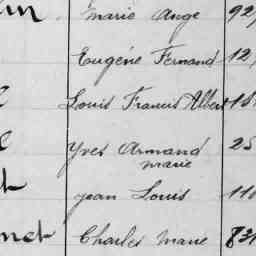 Marie Ange 92,
Eugène Fernand 12,
Louis Francis Albert
Yves Armand 25
Marie
Jean Louis 110
Charles Marie 831